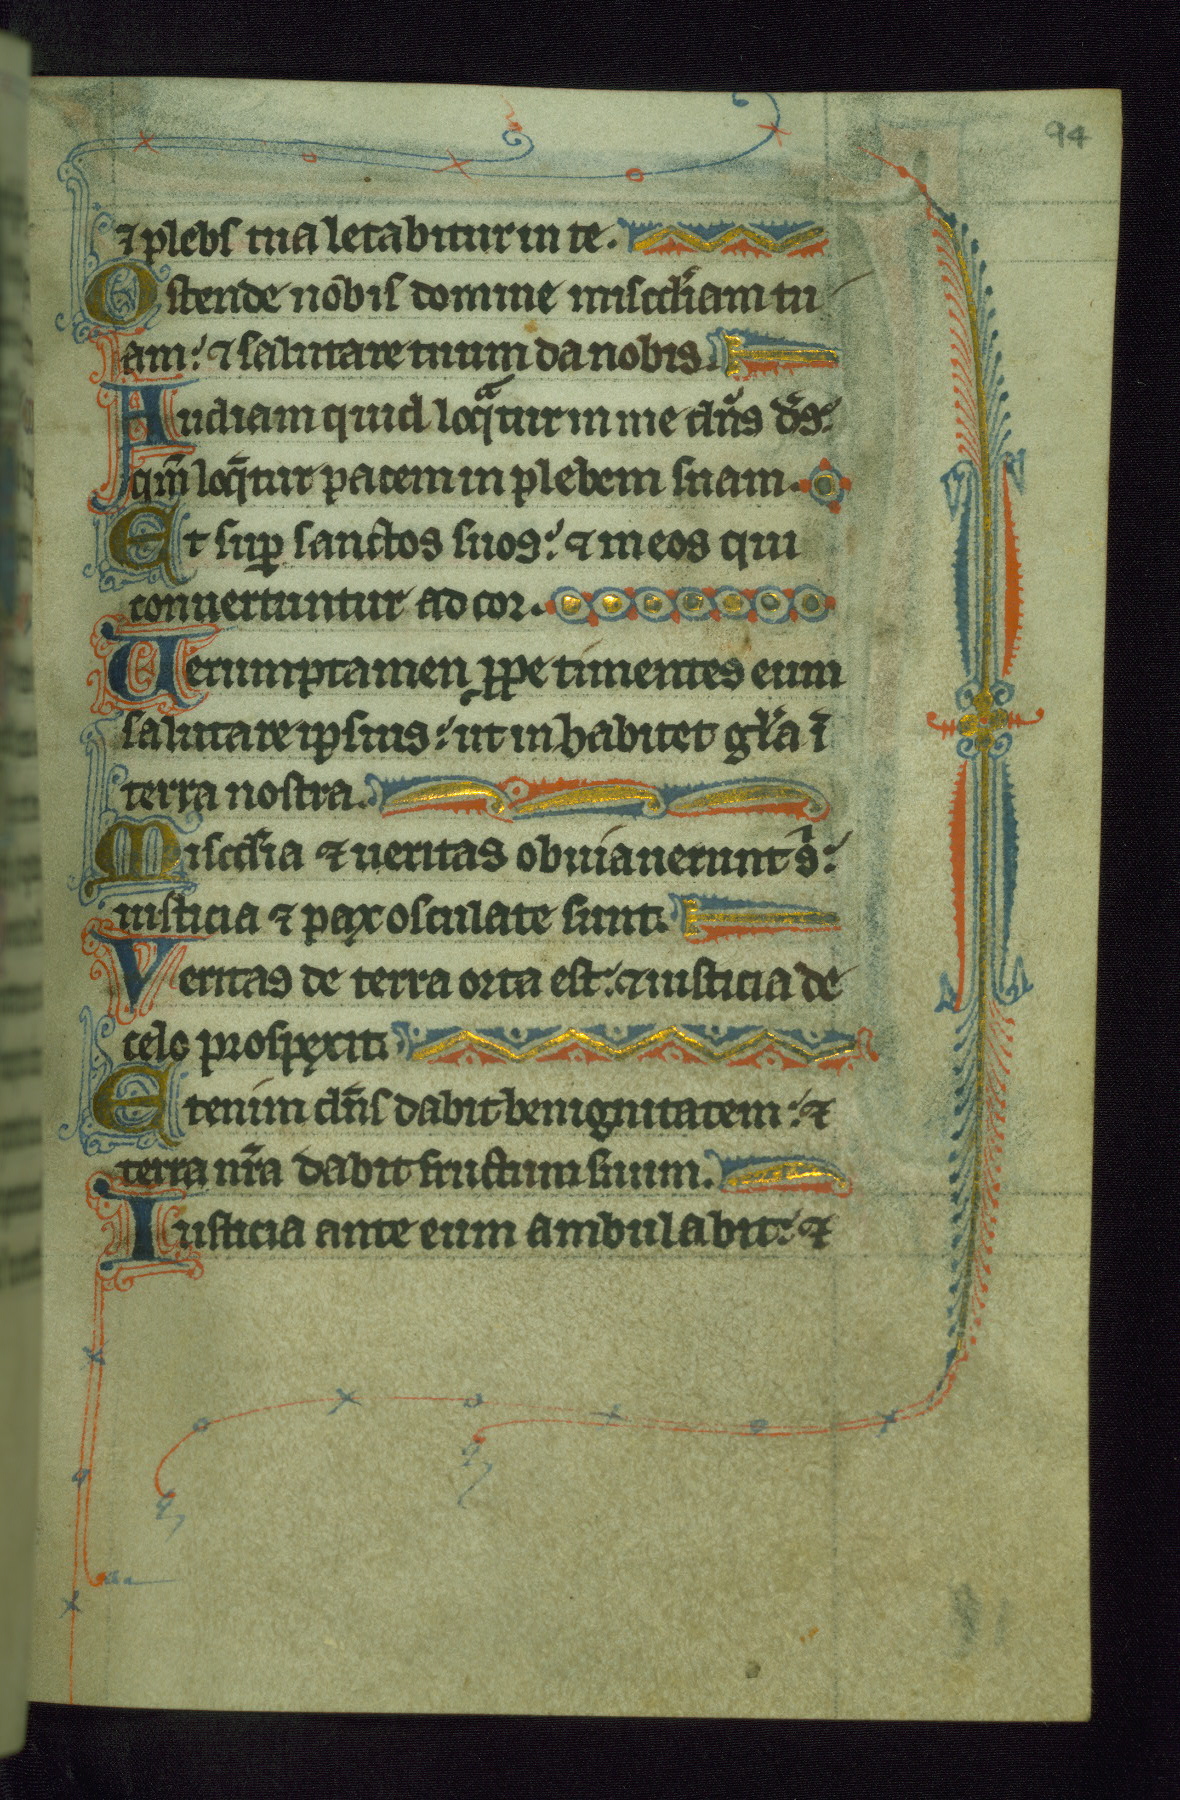 94
⁊ plebs tua letabitur in te.
Ostende nobis domine misc̄diam tu
am: ⁊ salutare tuum da nobis.
Audiam quid loq̄ͣtur in me dn̄s ds̄:
qm̄ loq̄tur pacem in plebem suam.
Et suꝑ sanctos suos: ⁊ in eos qui
conuertuntur ad cor.
Uerumptamen ꝓpe timentes eum
salutare ipsius: ut inhabitet gl̄a ī
terra nostra.
Misc̄dia ⁊ ueritas obuiauerunt s̄:
iusticia ⁊ pax osculate sunt.
Veritas de terra orta est: ⁊ iusticia de
celo prospexit.
Etenim dn̄s dabit benignitatem: ⁊
terra nr̄a dabit fructum suum.
Iusticia ante eum ambulabit: ⁊